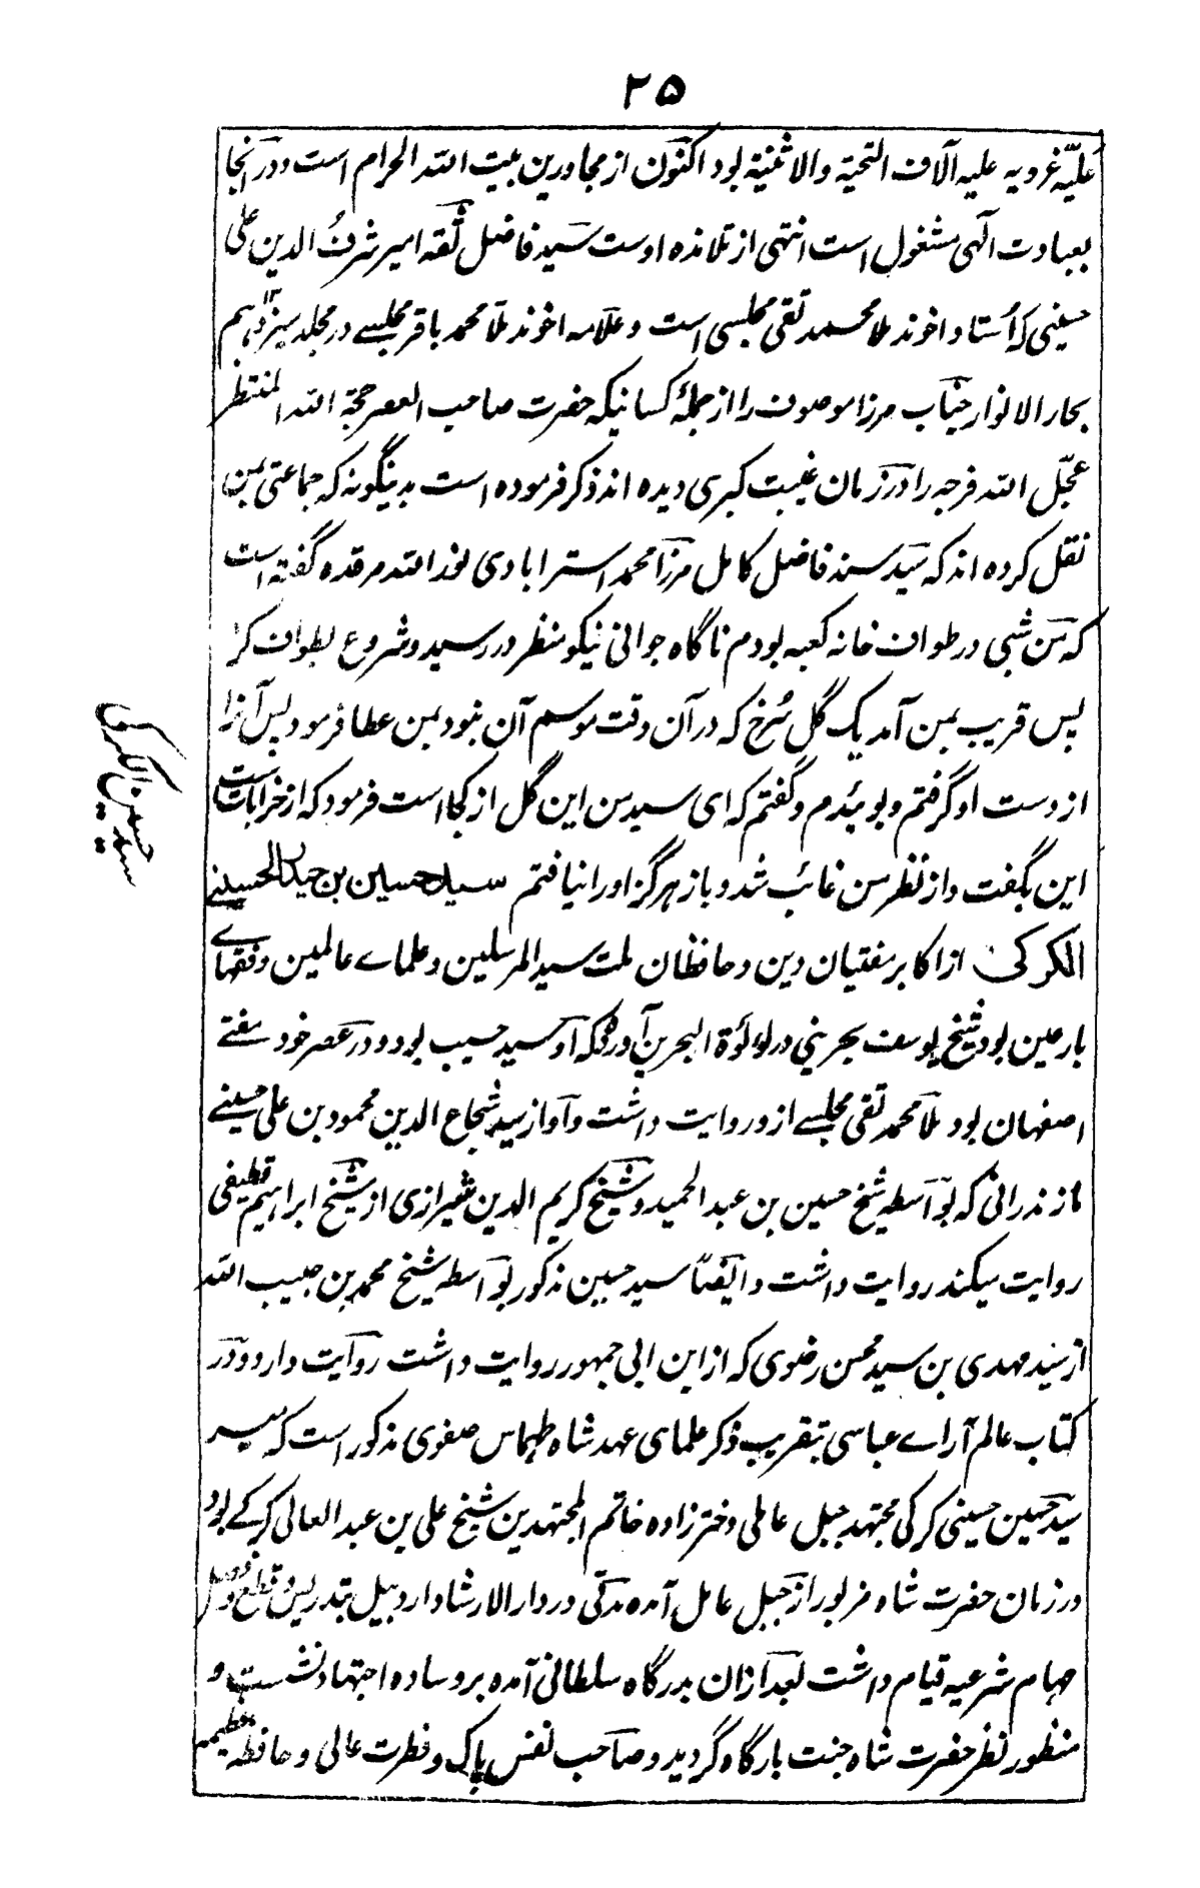 ۲۵
علیّه غرویه علیه آلاف التحیة والاثنیة بود اکنون از مجاورین بیت الله الحرام است ودر آنجا
بعبادت آلهی مشغول است انتهی از تلامذه اوست سید فاضل ثقه امیر شرف الدین علی
حسینی که استاد اخوند ملا محمد تقی مجلسی است و علامه اخوند ملا محمد باقر مجلسے در مجلد سیزدهم
بحار الانوار جناب مرزا موصوف را از جملهٔ کسانیکه حضرت صاحب العصر حجة الله المنتظر
عجّل الله فرجه را در زمان غیبت کبری دیده اند ذکر فرموده است بدینگونه که جماعتی بمن
نقل کرده اند که سید سند فاضل کامل مرزا محمد استرابادی نور الله مرقده گفته است
که من شبی در طواف خانه کعبه بودم ناگاه جوانی نیکو منظر در رسید و شروع بطواف کرد
پس قریب بمن آمد یک گل سُرخ که در آن وقت موسم آن نبود بمن عطا فرمود پس آنرا
از دست او گرفتم و بوئیدم و گفتم که ای سید من این گل از کجا است فرمود که از خرابات است
این بگفت و از نظر من غائب شد و باز هرگز اورا نیافتم سید حسین بن حیدر الحسینے
الکرکی از اکابر مفتیان دین و حافظان ملت سید المرسلین و علماے عالمین و فقهاے
بارعین بود شیخ یوسف بحرینی در لؤلؤة البحرین آورده که او سید حسیب بود و در عصر خود مفتے
اصفهان بود ملا محمد تقی مجلسے ازو روایت داشت و او از سید شجاع الدین محمود بن علی حسینے
مازندرانی که بواسطه شیخ حسین بن عبد الحمید و شیخ کریم الدین شیرازی از شیخ ابراهیم قطیفی
روایت میکند روایت داشت و ایضاً سید حسین مذکور بواسطه شیخ محمد بن حبیب الله
از سید مهدی بن سید محسن رضوی که از ابن ابی جمهور روایت داشت روایت دارد و در
کتاب عالم آراے عباسی بتقریب ذکر علمای عهد شاه طهماس صفوی مذکور است که میر
سید حسین حسینی کرکی مجتهد جبل عاملی دختر زاده خاتم المجتهدین شیخ علی بن عبد العالی کرکے بود
در زمان حضرت شاه مزبور از جبل عامل آمده مدتی در دار الارشاد اردبیل بتدریس و قطع و فصل
مهام شرعیه قیام داشت بعد ازان بدرگاه سلطانی آمده بر وساده اجتهاد نشست و
منظور نظر حضرت شاه جنت بارگاه گردید و صاحب نفس پاک و فطرت عالی و حافظه عظیمه
سید حسین الکرکی